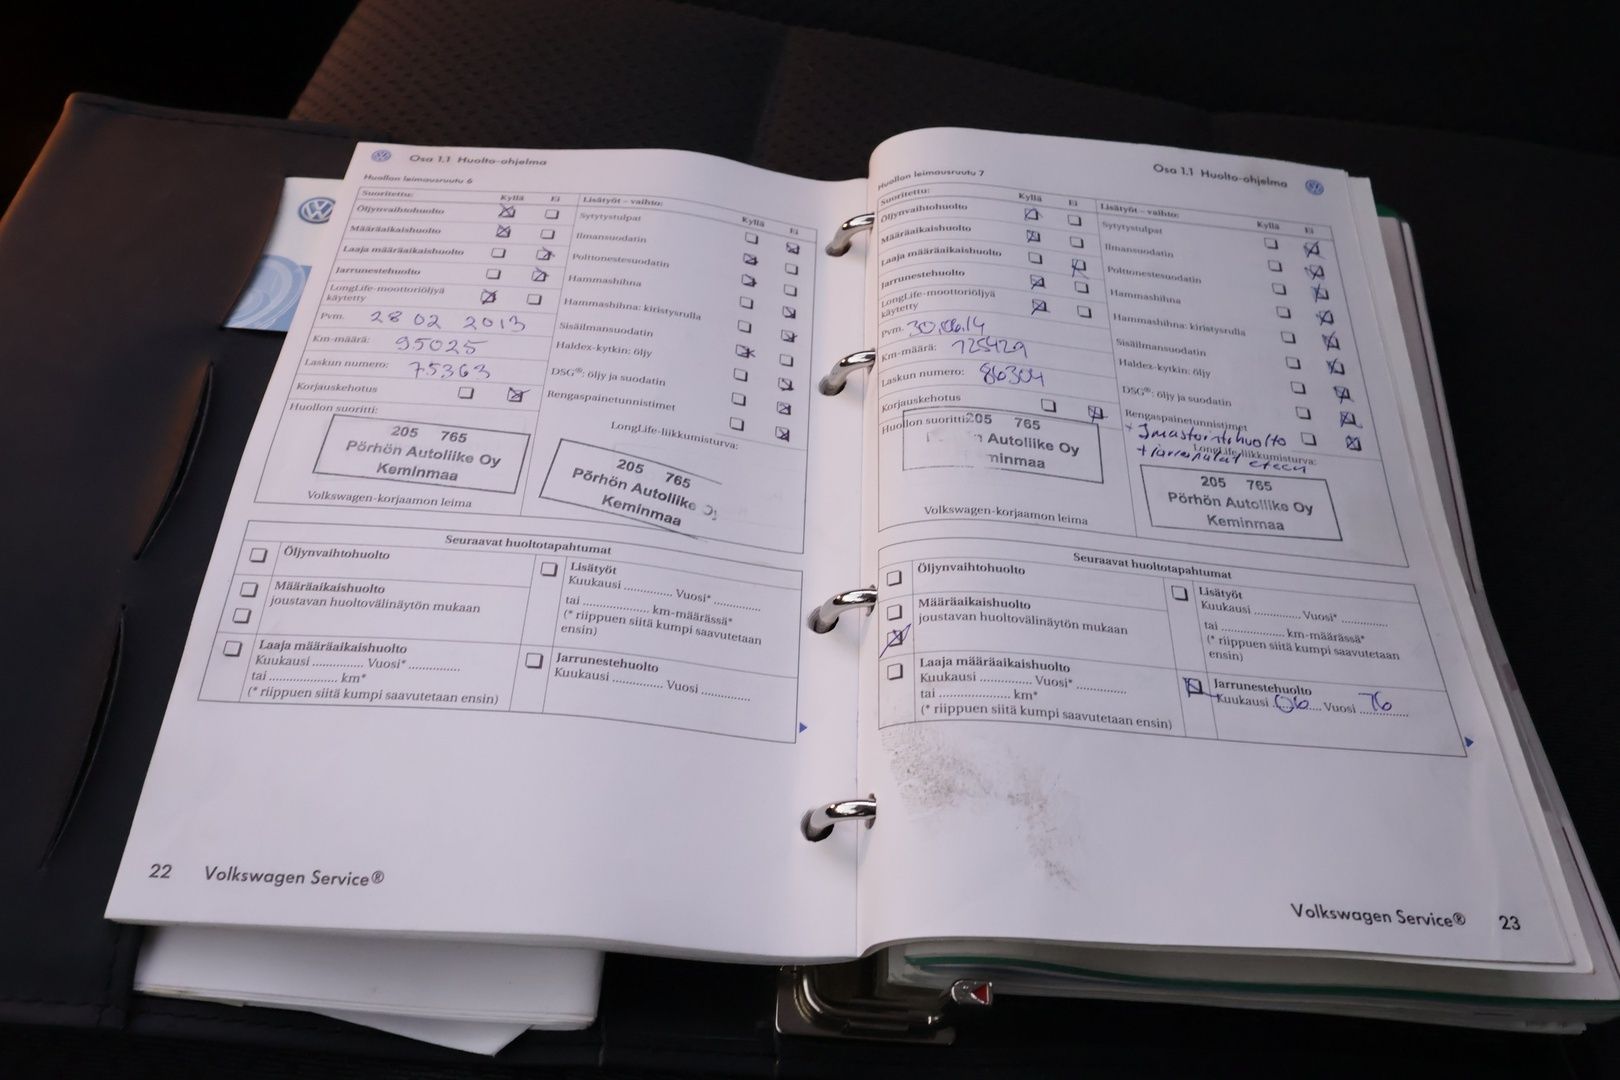 Osa 1.1 Huolto-ohjelma
Huollon leimausruutu 6
Suoritettu:
Kyllä Ei
Öljynvaihtohuolto
Määräaikaishuolto
Laaja määräaikaishuolto
Jarrunestehuolto
LongLife-moottoriöljyä
käytetty
Pvm. 28 02 2013
Km-määrä: 95025
Laskun numero: 75363
Korjauskehotus
Huollon suoritti:
205 765
Pörhön Autoliike Oy
Keminmaa
Volkswagen-korjaamon leima
Lisätyöt – vaihto:
Kyllä Ei
Sytytystulpat
Ilmansuodatin
Polttonestesuodatin
Hammashihna
Hammashihna: kiristysrulla
Sisäilmansuodatin
Haldex-kytkin: öljy
DSG®: öljy ja suodatin
Rengaspainetunnistimet
LongLife-liikkumisturva:
205 765
Pörhön Autoliike Oy
Keminmaa
Seuraavat huoltotapahtumat
Öljynvaihtohuolto
Määräaikaishuolto
joustavan huoltovälinäytön mukaan
Laaja määräaikaishuolto
Kuukausi .............. Vuosi* ..............
tai .................... km*
(* riippuen siitä kumpi saavutetaan ensin)
Lisätyöt
Kuukausi ............. Vuosi* .............
tai .................... km-määrässä*
(* riippuen siitä kumpi saavutetaan
ensin)
Jarrunestehuolto
Kuukausi .............. Vuosi .............
22 Volkswagen Service®
Osa 1.1 Huolto-ohjelma
Huollon leimausruutu 7
Suoritettu:
Kyllä Ei
Öljynvaihtohuolto
Määräaikaishuolto
Laaja määräaikaishuolto
Jarrunestehuolto
LongLife-moottoriöljyä
käytetty
Pvm. 30.06.14
Km-määrä: 125429
Laskun numero: 86304
Korjauskehotus
Huollon suoritti:
205 765
Autoliike Oy
Volkswagen-korjaamon leima
Lisätyöt – vaihto:
Kyllä Ei
Sytytystulpat
Ilmansuodatin
Polttonestesuodatin
Hammashihna
Hammashihna: kiristysrulla
Sisäilmansuodatin
Haldex-kytkin: öljy
DSG®: öljy ja suodatin
Rengaspainetunnistimet
+ Ilmastointihuolto
LongLife-liikkumisturva:
+ jarrupalat eteen
205 765
Pörhön Autoliike Oy
Keminmaa
Seuraavat huoltotapahtumat
Öljynvaihtohuolto
Määräaikaishuolto
joustavan huoltovälinäytön mukaan
Laaja määräaikaishuolto
Kuukausi .............. Vuosi* ..............
tai .................... km*
(* riippuen siitä kumpi saavutetaan ensin)
Lisätyöt
Kuukausi ............. Vuosi* .............
tai .................... km-määrässä*
(* riippuen siitä kumpi saavutetaan
ensin)
Jarrunestehuolto
Kuukausi 06 Vuosi 16
Volkswagen Service® 23